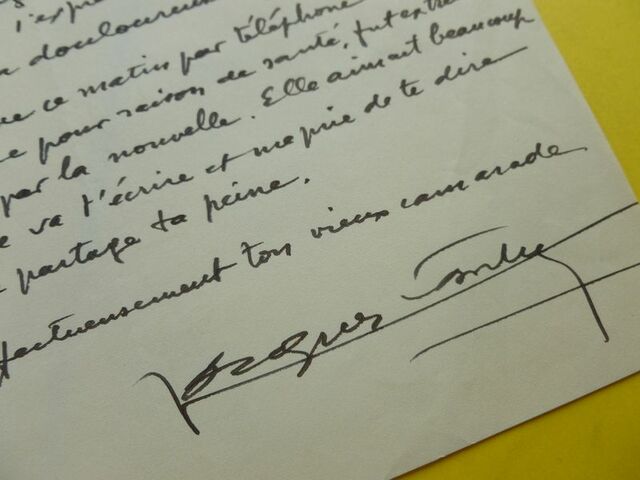 l'exp
douloureux
ce matin par téléphone
pour raison de santé, fut extrê
par la nouvelle. Elle aimait beaucoup
va t'écrire et me prie de te dire
partage ta peine.
ffectueusement ton vieux camarade
Jacques